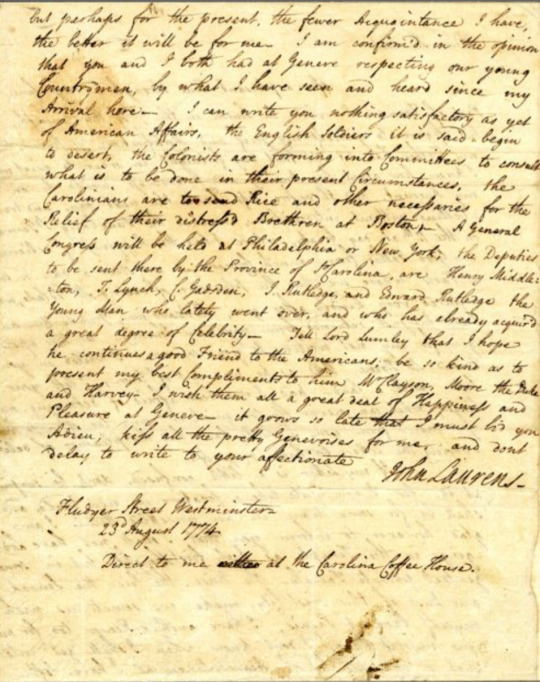 but perhaps for the present, the fewer Acquaintance I have,
the better it will be for me— I am confirm'd in the opinion
that you and I both had at Geneve respecting our young
Countrymen, by what I have seen and heard since my
Arrival here— I can write you nothing satisfactory as yet
of American Affairs, the English Soldiers it is said begin
to desert, the Colonists are forming into Committees to consult
what is to be done in their present Circumstances, the
Carolinians are to send Rice and other necessaries for the
Relief of their distress'd Brethren at Boston, A General
Congress will be held at Philadelphia or New York, the Deputies
to be sent there by the Province of S Carolina, are Henry Middle-
-ton, T. Lynch, C. Gadsden, J. Rutledge, and Edward Rutledge the
Young Man who lately went over, and who has already acquird
a great degree of Celebrity— Tell Lord Lumley that I hope
he continues a good Friend to the Americans, be so kind as to
present my best Compliments to him Mr Clayson, Moore the Duke
and Harvey— I wish them all a great deal of Happiness and
Pleasure at Geneve— it grows so late that I must bid you
Adieu, kiss all the pretty Genevoises for me, and dont
delay to write to your affectionate
John Laurens—
Fludyer Street Westminster—
23d August 1774
Direct to me at the Carolina Coffee House.